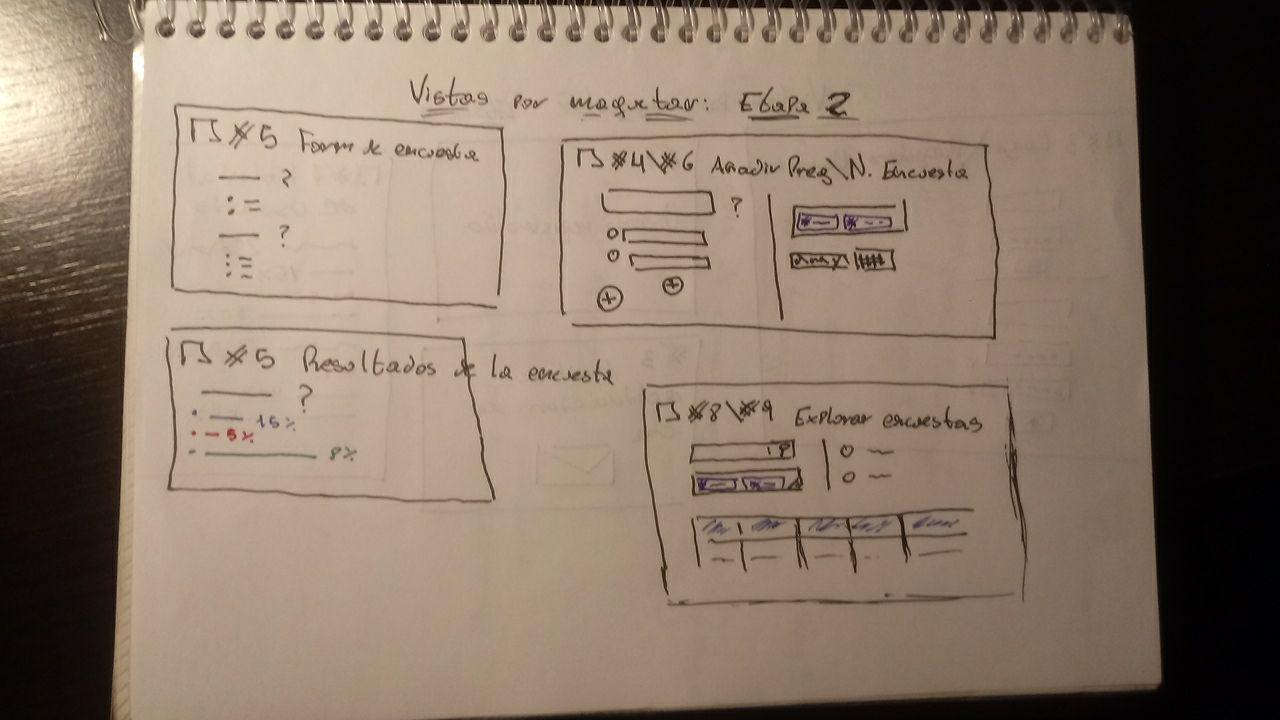 Vistas por maquetar: Etapa 2
#5 Form de encuesta
?
?
#4\#6 Añadir Preg\N. Encuesta
?
#5 Resultados de la encuesta
?
15%
5%
8%
#8\#9 Explorar encuestas